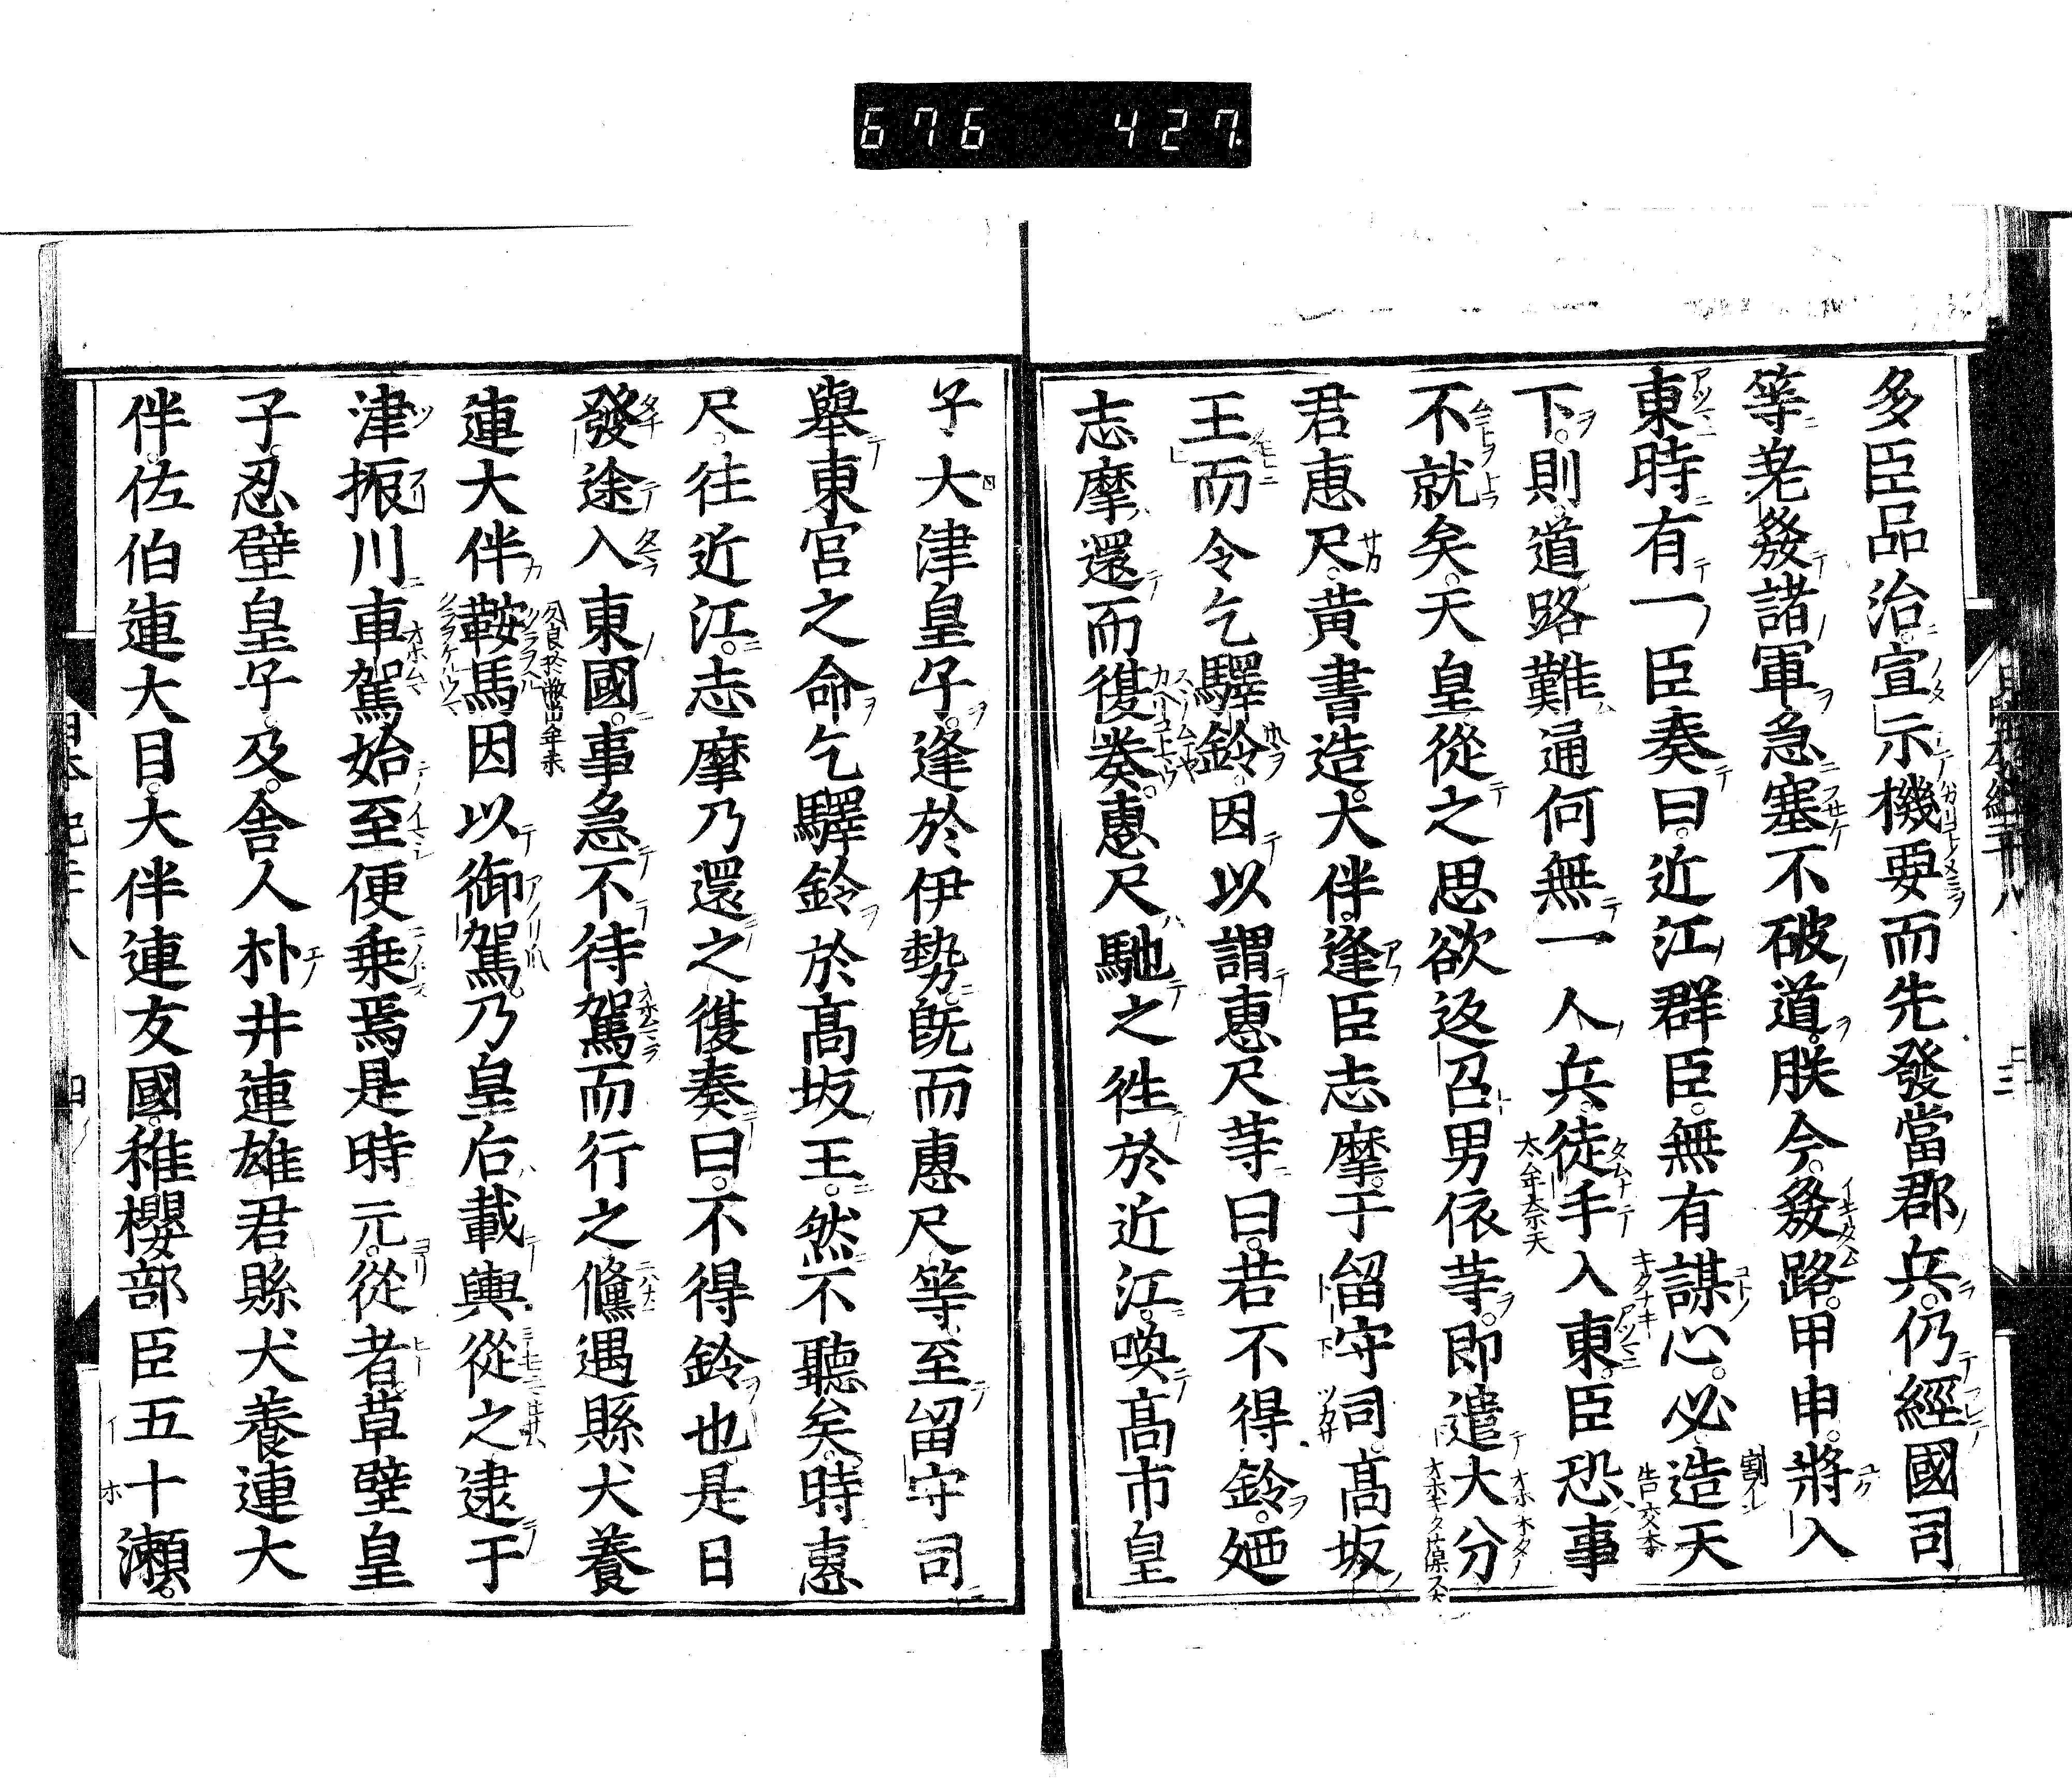 676 427
多臣品治。宣示機要而先發當郡兵。仍經國司
等差發諸軍急塞不破道。朕今發路。甲申。將入
東時有一臣奏曰。近江群臣。無有謀心。必造天
下。則道路難通何無一人兵。徒手入東。臣恐事
不就矣。天皇從之思欲返召男依䓁。即遣大分
君惠尺。黄書造。大伴。逢臣志摩。于留守司。髙坂
王而令乞驛鈴。因以謂惠尺䓁曰。若不得鈴。廼
志摩還而復奏。惠尺馳之徃於近江。喚髙市皇
子大津皇子。逢於伊勢。既而惠尺等至留守司
舉東宮之命乞驛鈴於髙坂王。然不聽矣。時惠
尺。往近江。志摩乃還之復奏曰。不得鈴也。是日
發途入東國。事急不待駕而行之儵遇縣犬養
連大伴鞍馬因以御駕。乃皇后載輿從之逮于
津振川車駕始至便乗焉是時元。從者草壁皇
子。忍壁皇子。及。舎人朴井連雄君縣犬養連大
伴。佐伯連大目。大伴連友國。稚櫻部臣五十瀬。